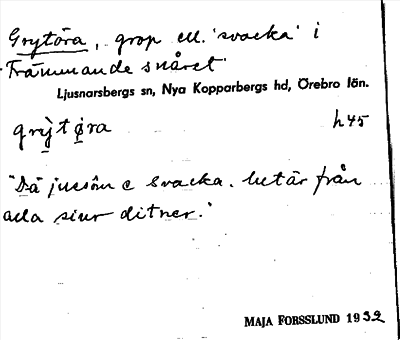 Grytöra, grop ell. 'svacka' i
Främmande snåret.
Ljusnarsbergs sn, Nya Kopparbergs hd, Örebro län.
gry̨t ø̨ra h45
"Dä jussôm e svacka. betär från
alla siur ditner."
MAJA FORSSLUND 1932